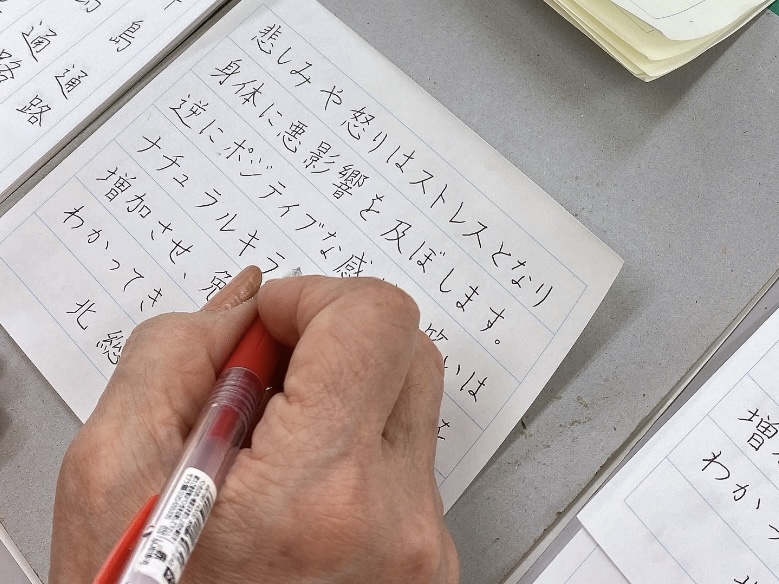 島
通通
路路
悲しみや怒りはストレスとなり
身体に悪影響を及ぼします。
逆にポジティブな感 笑いは
ナチュラルキラ を
増加させ、免
わかってき
北総
増
わかっ